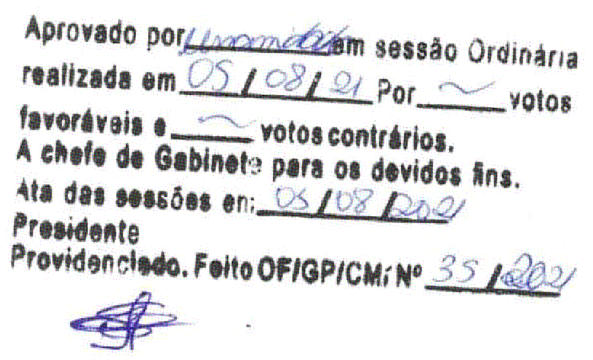 Aprovado por Unanimidade em sessão Ordinária
realizada em 05/08/21 Por ~ votos
favoráveis e ~ votos contrários.
A chefe de Gabinete para os devidos fins.
Ata das sessões en: 05/08/2021
Presidente
Providenciado. Feito OF/GP/CM: Nº 35/2021